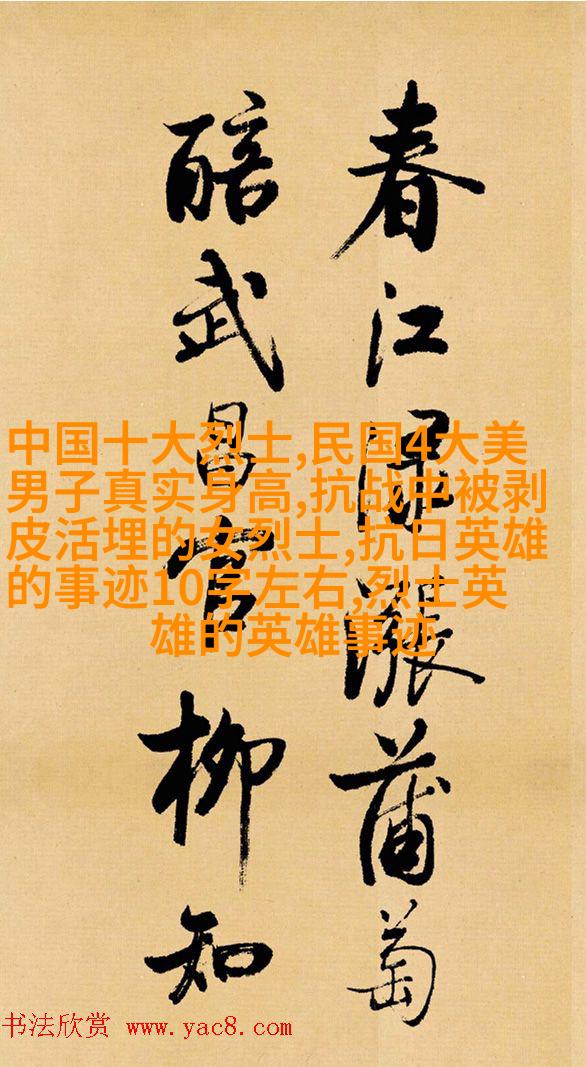 春江渌漲蒲萄
醅武昌官柳知
中国十大烈士,民国4大美
男子真实身高,抗战中被剥
皮活埋的女烈士,抗日英雄
的事迹10字左右,烈士英
雄的英雄事迹
书法欣赏 www.yac8.com